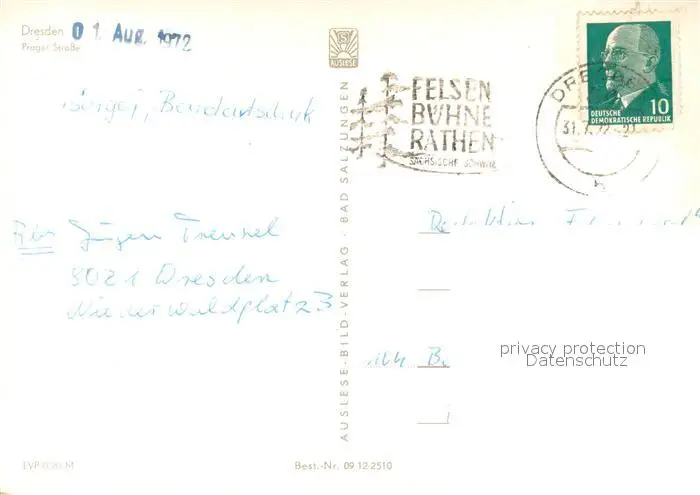 Dresden
Prager Straße
01. Aug. 1972
AUSLESE
Sergej, Bondartschuk
FELSEN
BÜHNE
RATHEN
SÄCHSISCHE SCHWEIZ
DRESDEN
31.7.72
10
DEUTSCHE
DEMOKRATISCHE REPUBLIK
Abs. Jürgen Trensel
8021 Dresden
Niederwaldplatz 3
AUSLESE-BILD-VERLAG · BAD SALZUNGEN
Redaktion
B.
privacy protection
Datenschutz
EVP 0,20 M
Best.-Nr. 09 12-2510